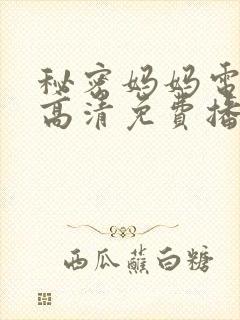 秘密妈妈电
高清免费播
西瓜蘸白糖